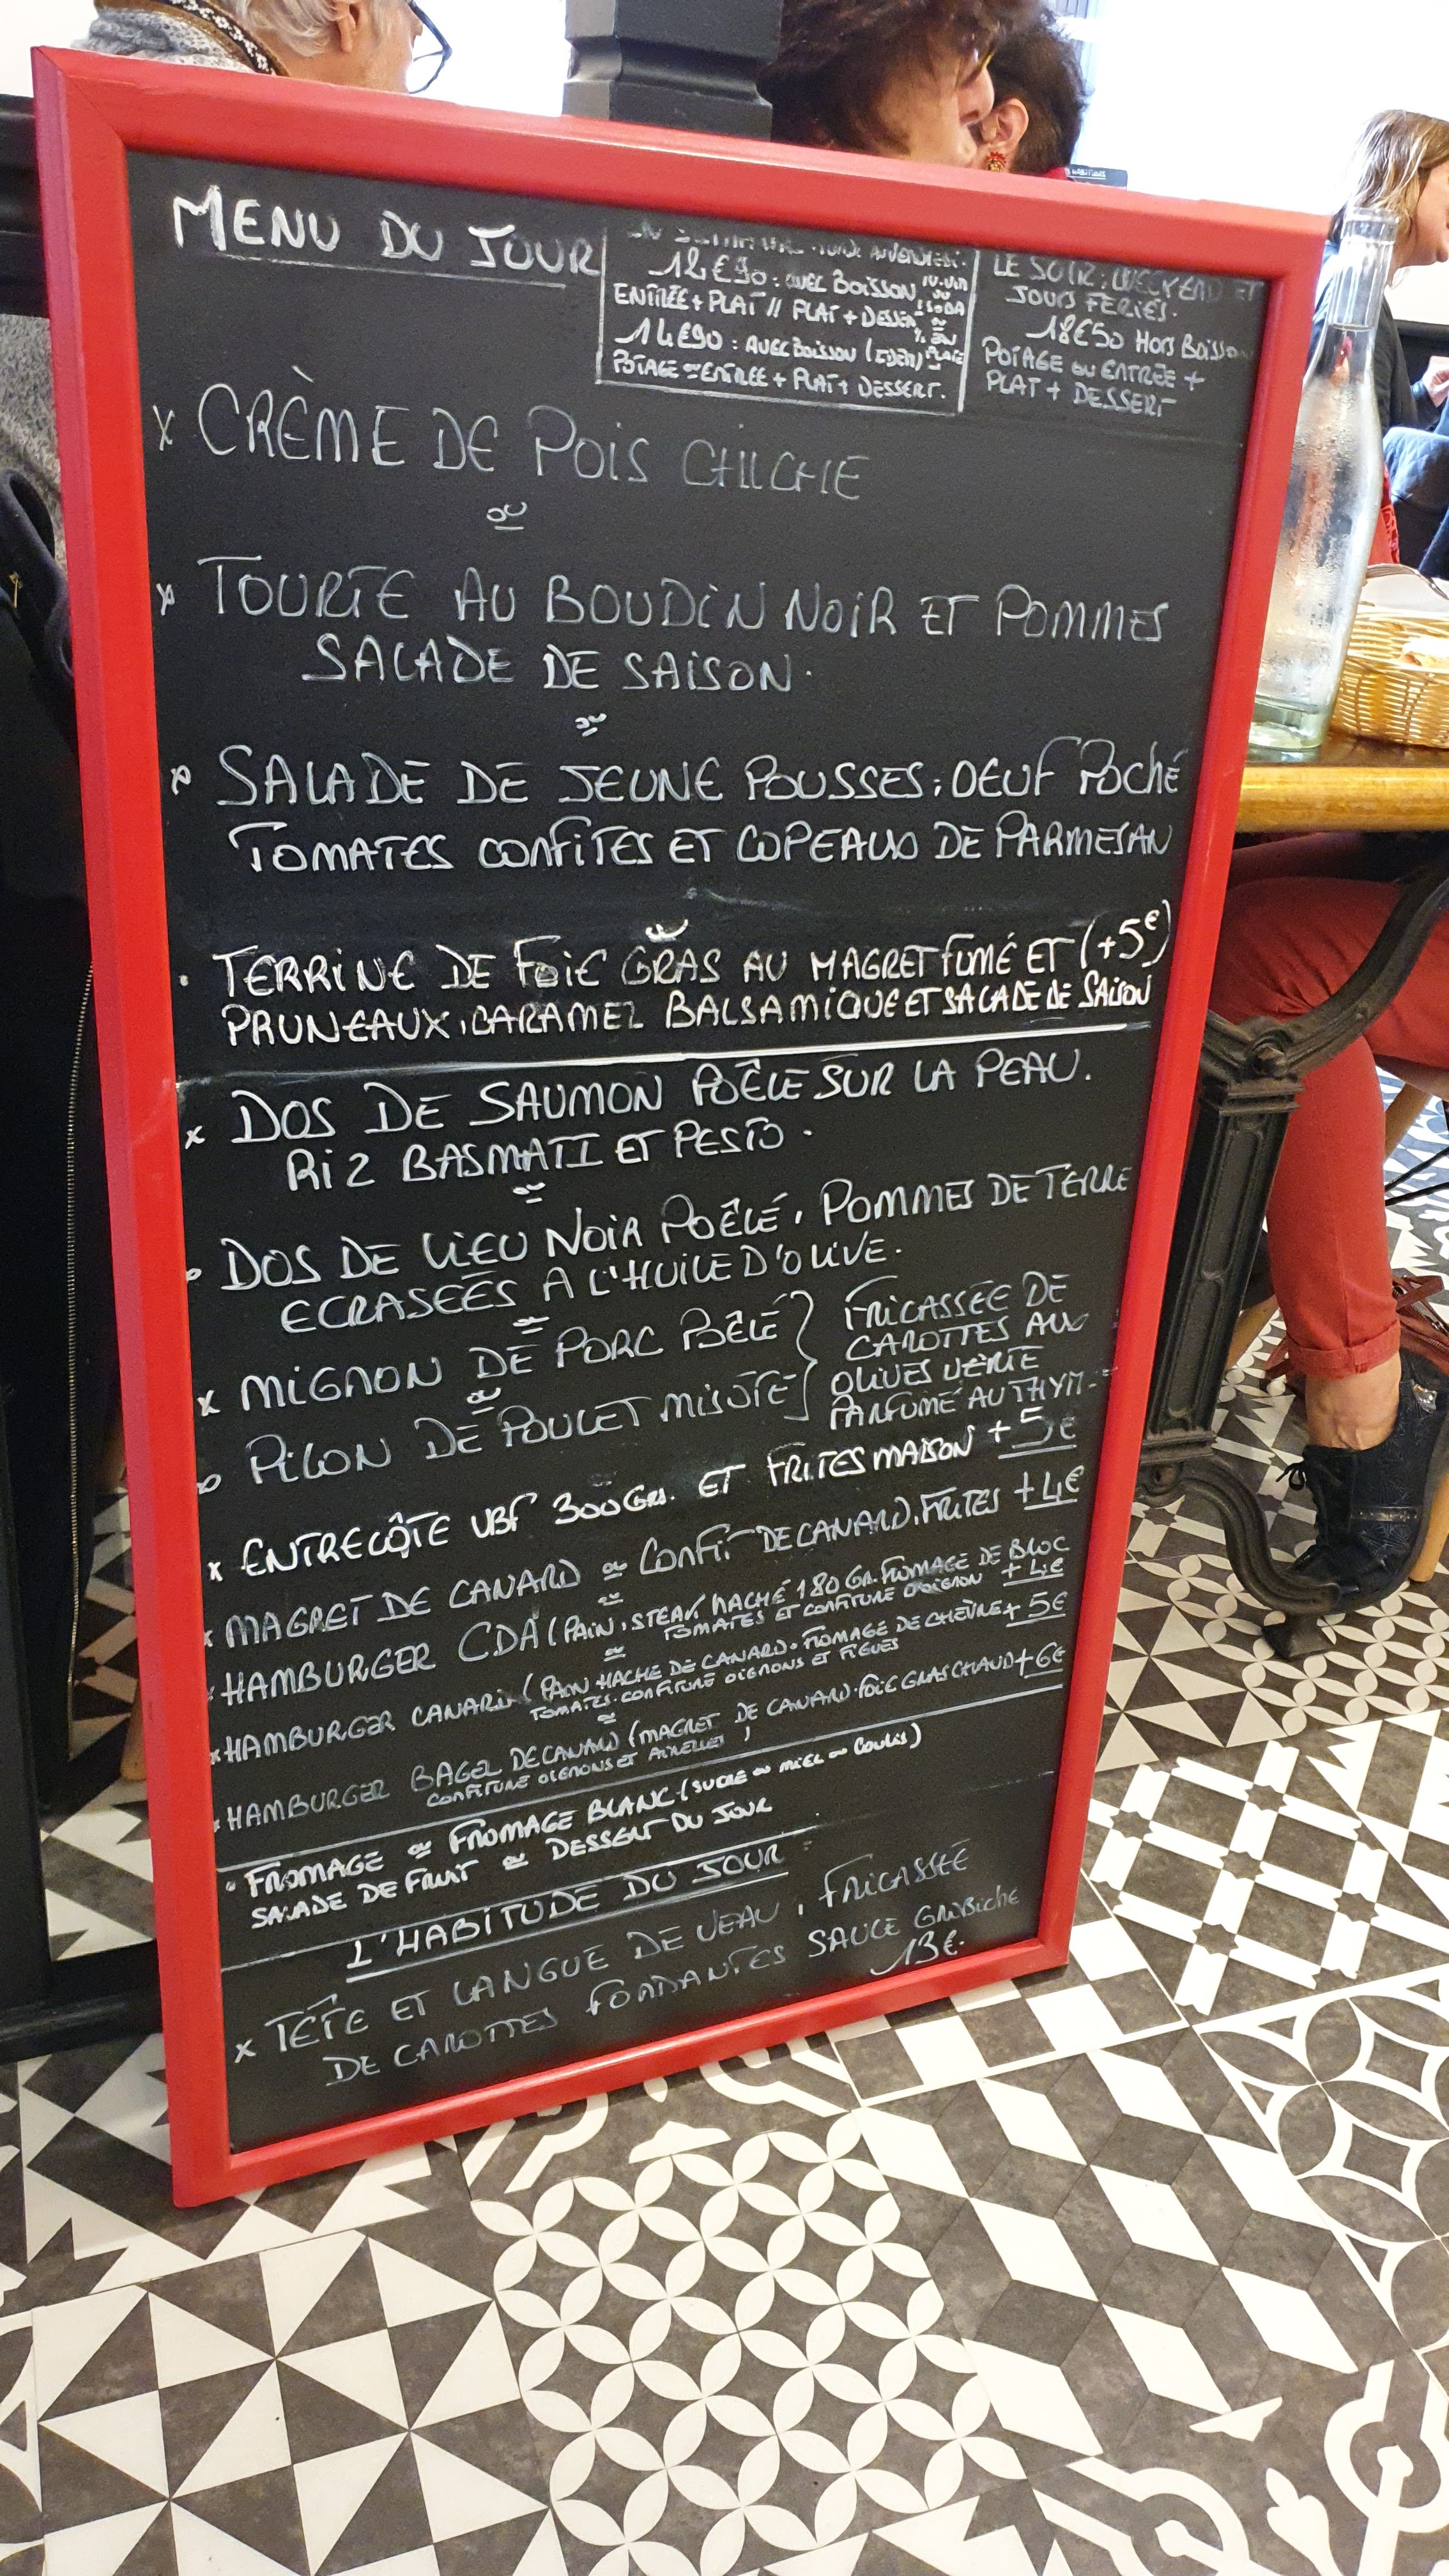 MENU DU JOUR
12€90 : AVEC BOISSON
ENTRÉE + PLAT // PLAT + DESSERT
14€90 : AVEC BOISSON (IDEM)
POTAGE ou ENTRÉE + PLAT + DESSERT.
LE SOIR, WEEKEND ET
JOURS FERIÉS.
18€50 HORS BOISSON
POTAGE ou ENTRÉE +
PLAT + DESSERT
x CRÈME DE POIS CHICHE
ou
x TOURTE AU BOUDIN NOIR ET POMMES
SALADE DE SAISON.
ou
SALADE DE JEUNE POUSSES, OEUF POCHÉ
TOMATES CONFITES ET COPEAUX DE PARMESAN
ou
. TERRINE DE FOIE GRAS AU MAGRET FUMÉ ET (+5€)
PRUNEAUX, CARAMEL BALSAMIQUE ET SALADE DE SAISON
x DOS DE SAUMON POÊLE SUR LA PEAU.
RIZ BASMATI ET PESTO.
ou
DOS DE LIEU NOIR POÊLÉ, POMMES DE TERRE
ECRASEÉS A L'HUILE D'OLIVE.
ou
x MIGNON DE PORC POÊLÉ }
ou
PILON DE POULET MIJOTÉ
FRICASSÉE DE
CAROTTES AUX
OLIVES VERTE
PARFUMÉ AU THYM
x ENTRECÔTE VBF 300 GRS. ET FRITES MAISON +5€
x MAGRET DE CANARD ou CONFIT DE CANARD, FRITES +4€
ou
HAMBURGER CDA (PAIN, STEAK HACHÉ 180 GR. FROMAGE DE BLOC
TOMATES ET CONFITURE D'OIGNON +4€
ou
x HAMBURGER CANARD (PAIN HACHÉ DE CANARD. FROMAGE DE CHÈVRE + 5€
TOMATES. CONFITURE OIGNONS ET FIGUES
ou
HAMBURGER BAGEL DE CANARD (MAGRET DE CANARD. FOIE GRAS CHAUD +6€
CONFITURE OIGNONS ET AIRELLES)
. FROMAGE ou FROMAGE BLANC (SUCRE ou MIEL ou COULIS)
SALADE DE FRUIT ou DESSERT DU JOUR
L'HABITUDE DU JOUR
x TÊTE ET LANGUE DE VEAU, FRICASSÉE
DE CAROTTES FONDANTES SAUCE GRIBICHE
13€.